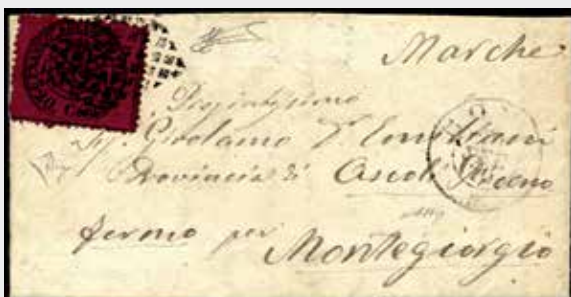 Marche
Pregiatissimo
Sig. Girolamo D'Emiliani
Provincia di Ascoli Piceno
fermo per Montegiorgio